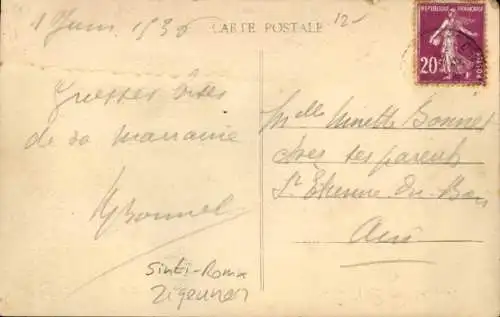 1 Juin 1936
CARTE POSTALE
12-
REPUBLIQUE FRANÇAISE
20c
POSTES
Grosses bises
de sa marraine
MBonnet
Melle Ninette Bonnet
chez ses parents
St Etienne du Bois
Ain
Sinti-Roma
Zigeuner